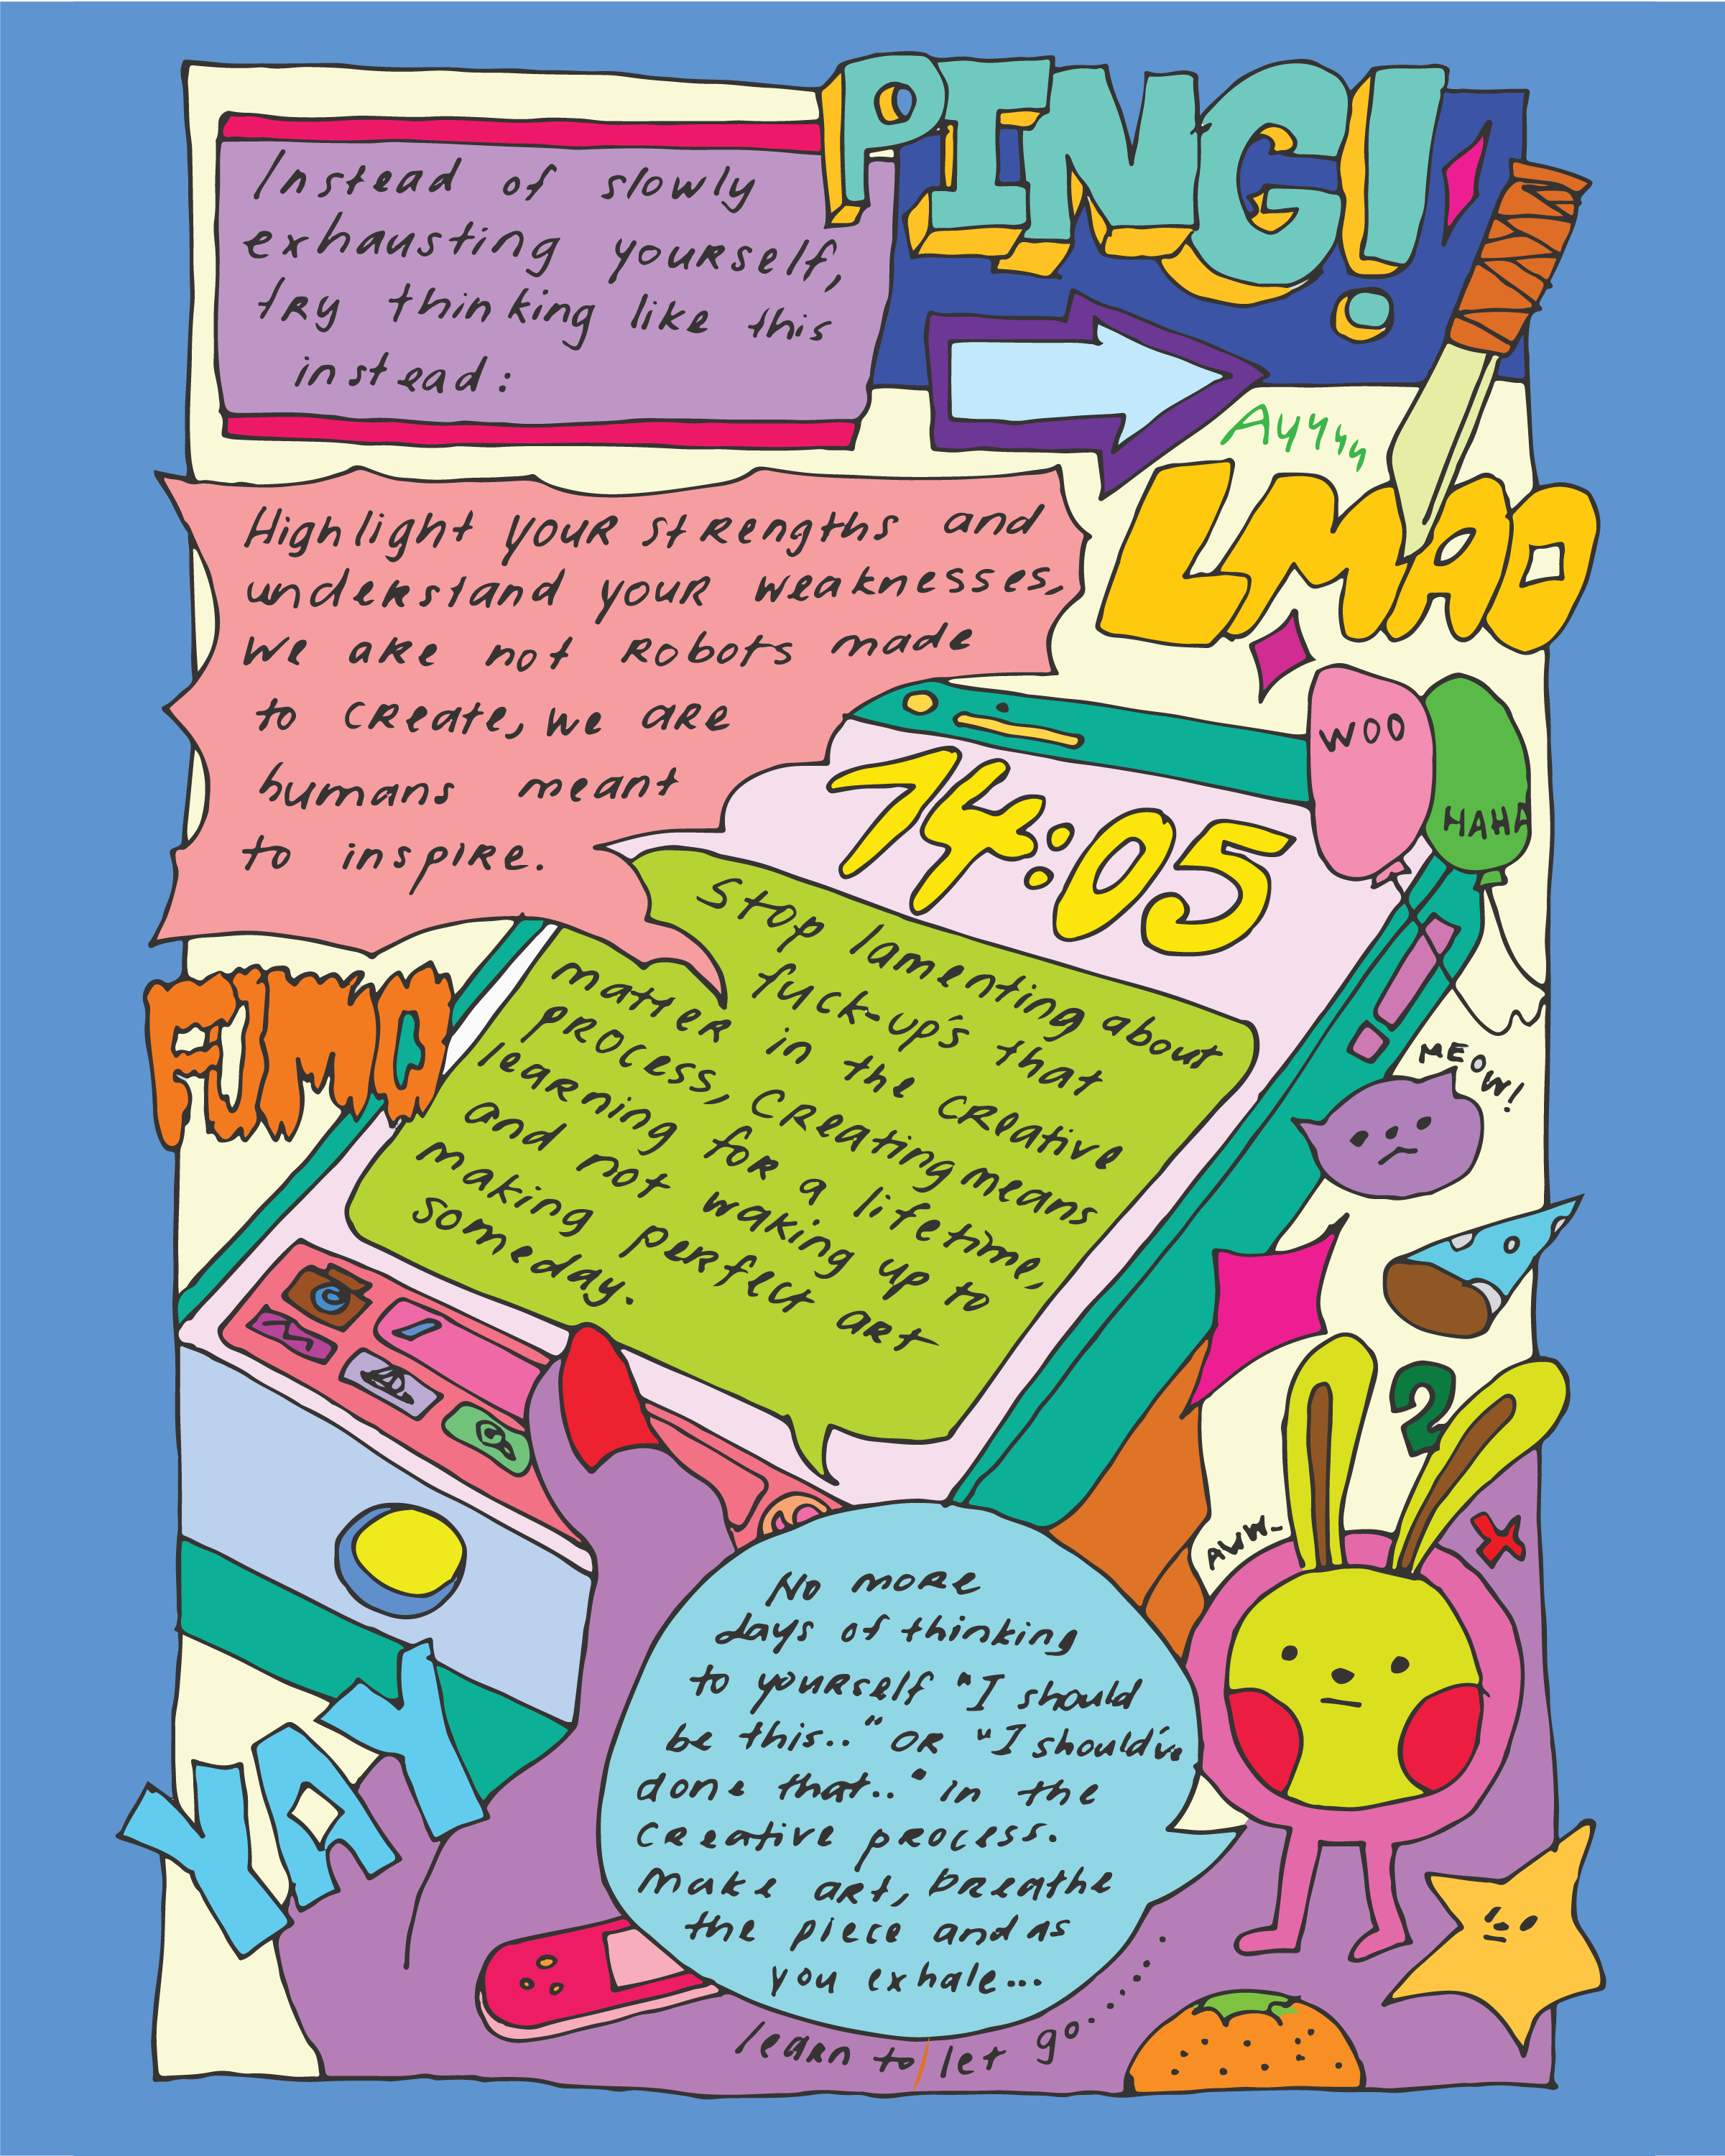 PING!
Instead of slowly
exhausting yourself,
try thinking like this
instead:
Ayyyy
LMAO
Highlight your strengths and
understand your weaknesses.
We are not robots made
to create, we are
humans meant
to inspire.
WOO
HAHA
14:05
Stop lamenting about
fuck-up's that
matter in the creative
process, creating means
learning for a lifetime,
and not waking up to
making perfect art
someday.
FOMO
MEOW!
2
x
AWW-
No more
days of thinking
to yourself "I should
be this.." or "I should'v
done that.." in the
creative process.
Make art, breathe
the piece and as
you exhale...
learn to let go......
YAY